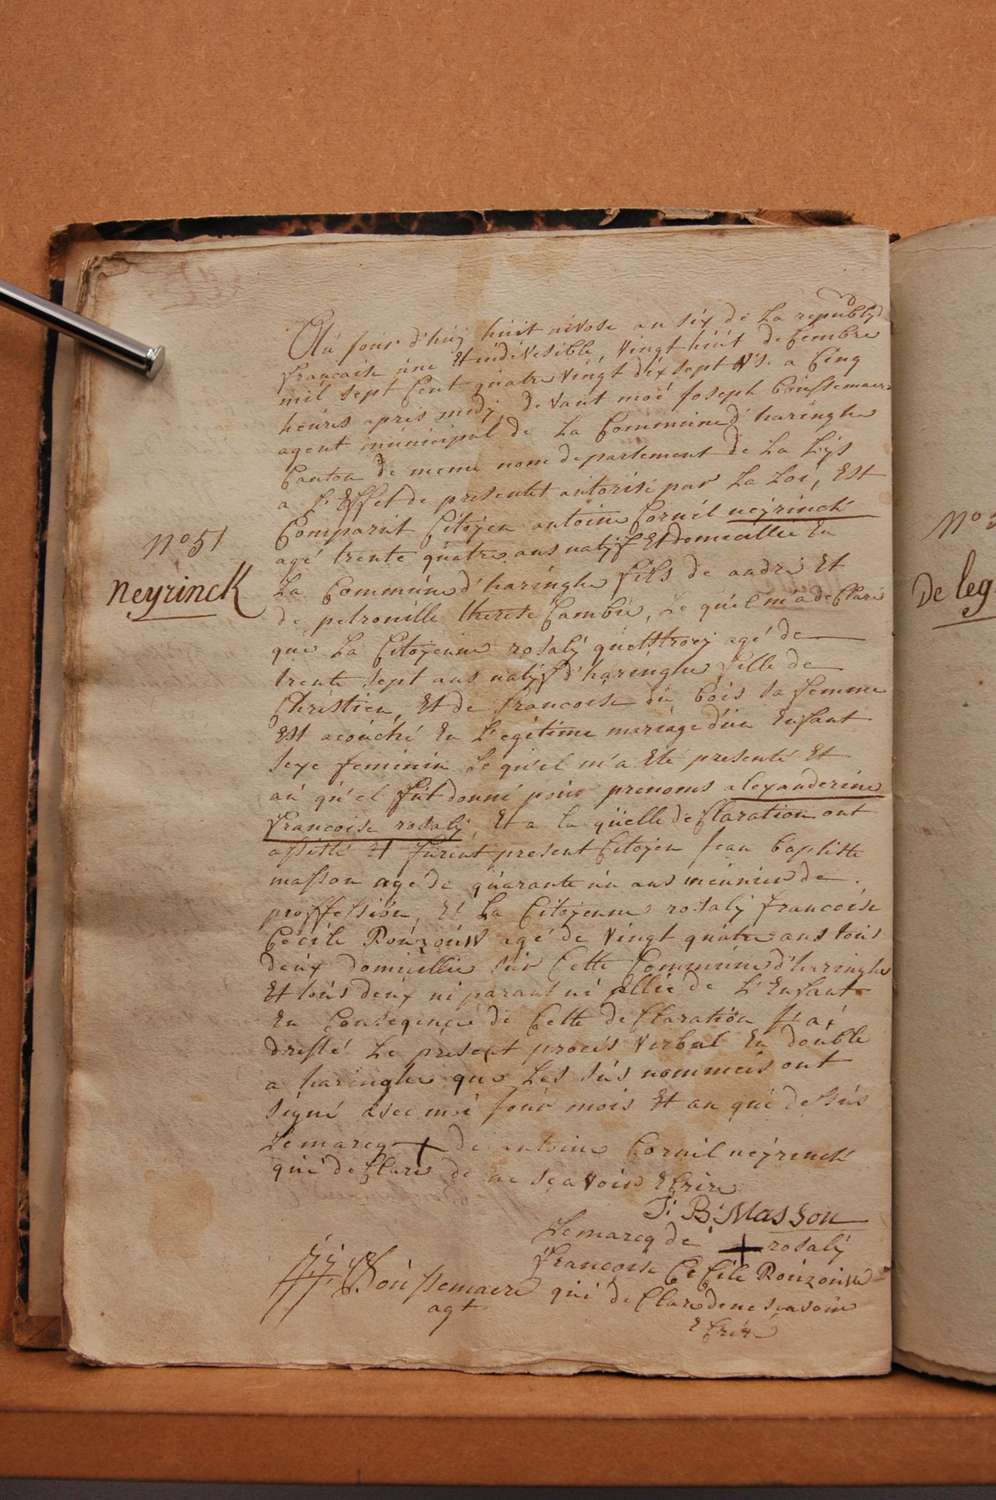 Au jour d'huÿ huit nivose an six de La republiq
francaise une Et indivisible, vingt huit decembre
mil sept Cent quatre vingt dix sept V.S. a Cinq
heures apres midÿ, devant moé Joseph Boussemaere
agent municipal de La Commune d'haringhe
Canton de meme nom departement de La Lÿs
a L'Effet de presentet autorisé par La Loi, Est
Comparut Citoÿen antoine Cornil neÿrinck
agé trente quatre ans natÿf Et Domicillie En
La Commune d'haringhe fils de andré Et
de petronille therese Cambie, Le quel m'a declaré
N° 51
Neyrinck
que La Citoÿenne rosalÿ quetstroeÿ agé de
trente sept ans natÿf d'haringhe fille de
Christien, Et de francoise du bois sa femme
Est acouché En Legitime mariage d'un Enfant
sexe feminin Le quel m'a Eté presenté Et
au quel fut donné pour prenoms alexanderine
francoise rosalÿ, Et a la quelle declaration ont
assisté et furent present Citoÿen Jean baptiste
masson agé de quarante un ans meunier de
proffession, Et La Citoÿenne rosalÿ francoise
Cecile Rouzouw agé de vingt quatre ans tous
deux domicillie sur Cette Commune d'haringhe
Et tous deux ni parant ni allié de L'Enfant
En Conseqence de Cette declaration J'ai
dressé Le present proces verbal En double
a haringhe que Les sus nommeis ont
signé avec moi jour mois Et an que dessus
Lemarcq + de antoine Cornil neÿrinck
qui declare de ne sçavoir Ecrire
J: B: Masson
Lemarcq de + rosalÿ
francoise Cecile Rouzouw
qui declare de ne scavoir
Ecrire
J.J. Boussemaere
agt
N° 5
De leg